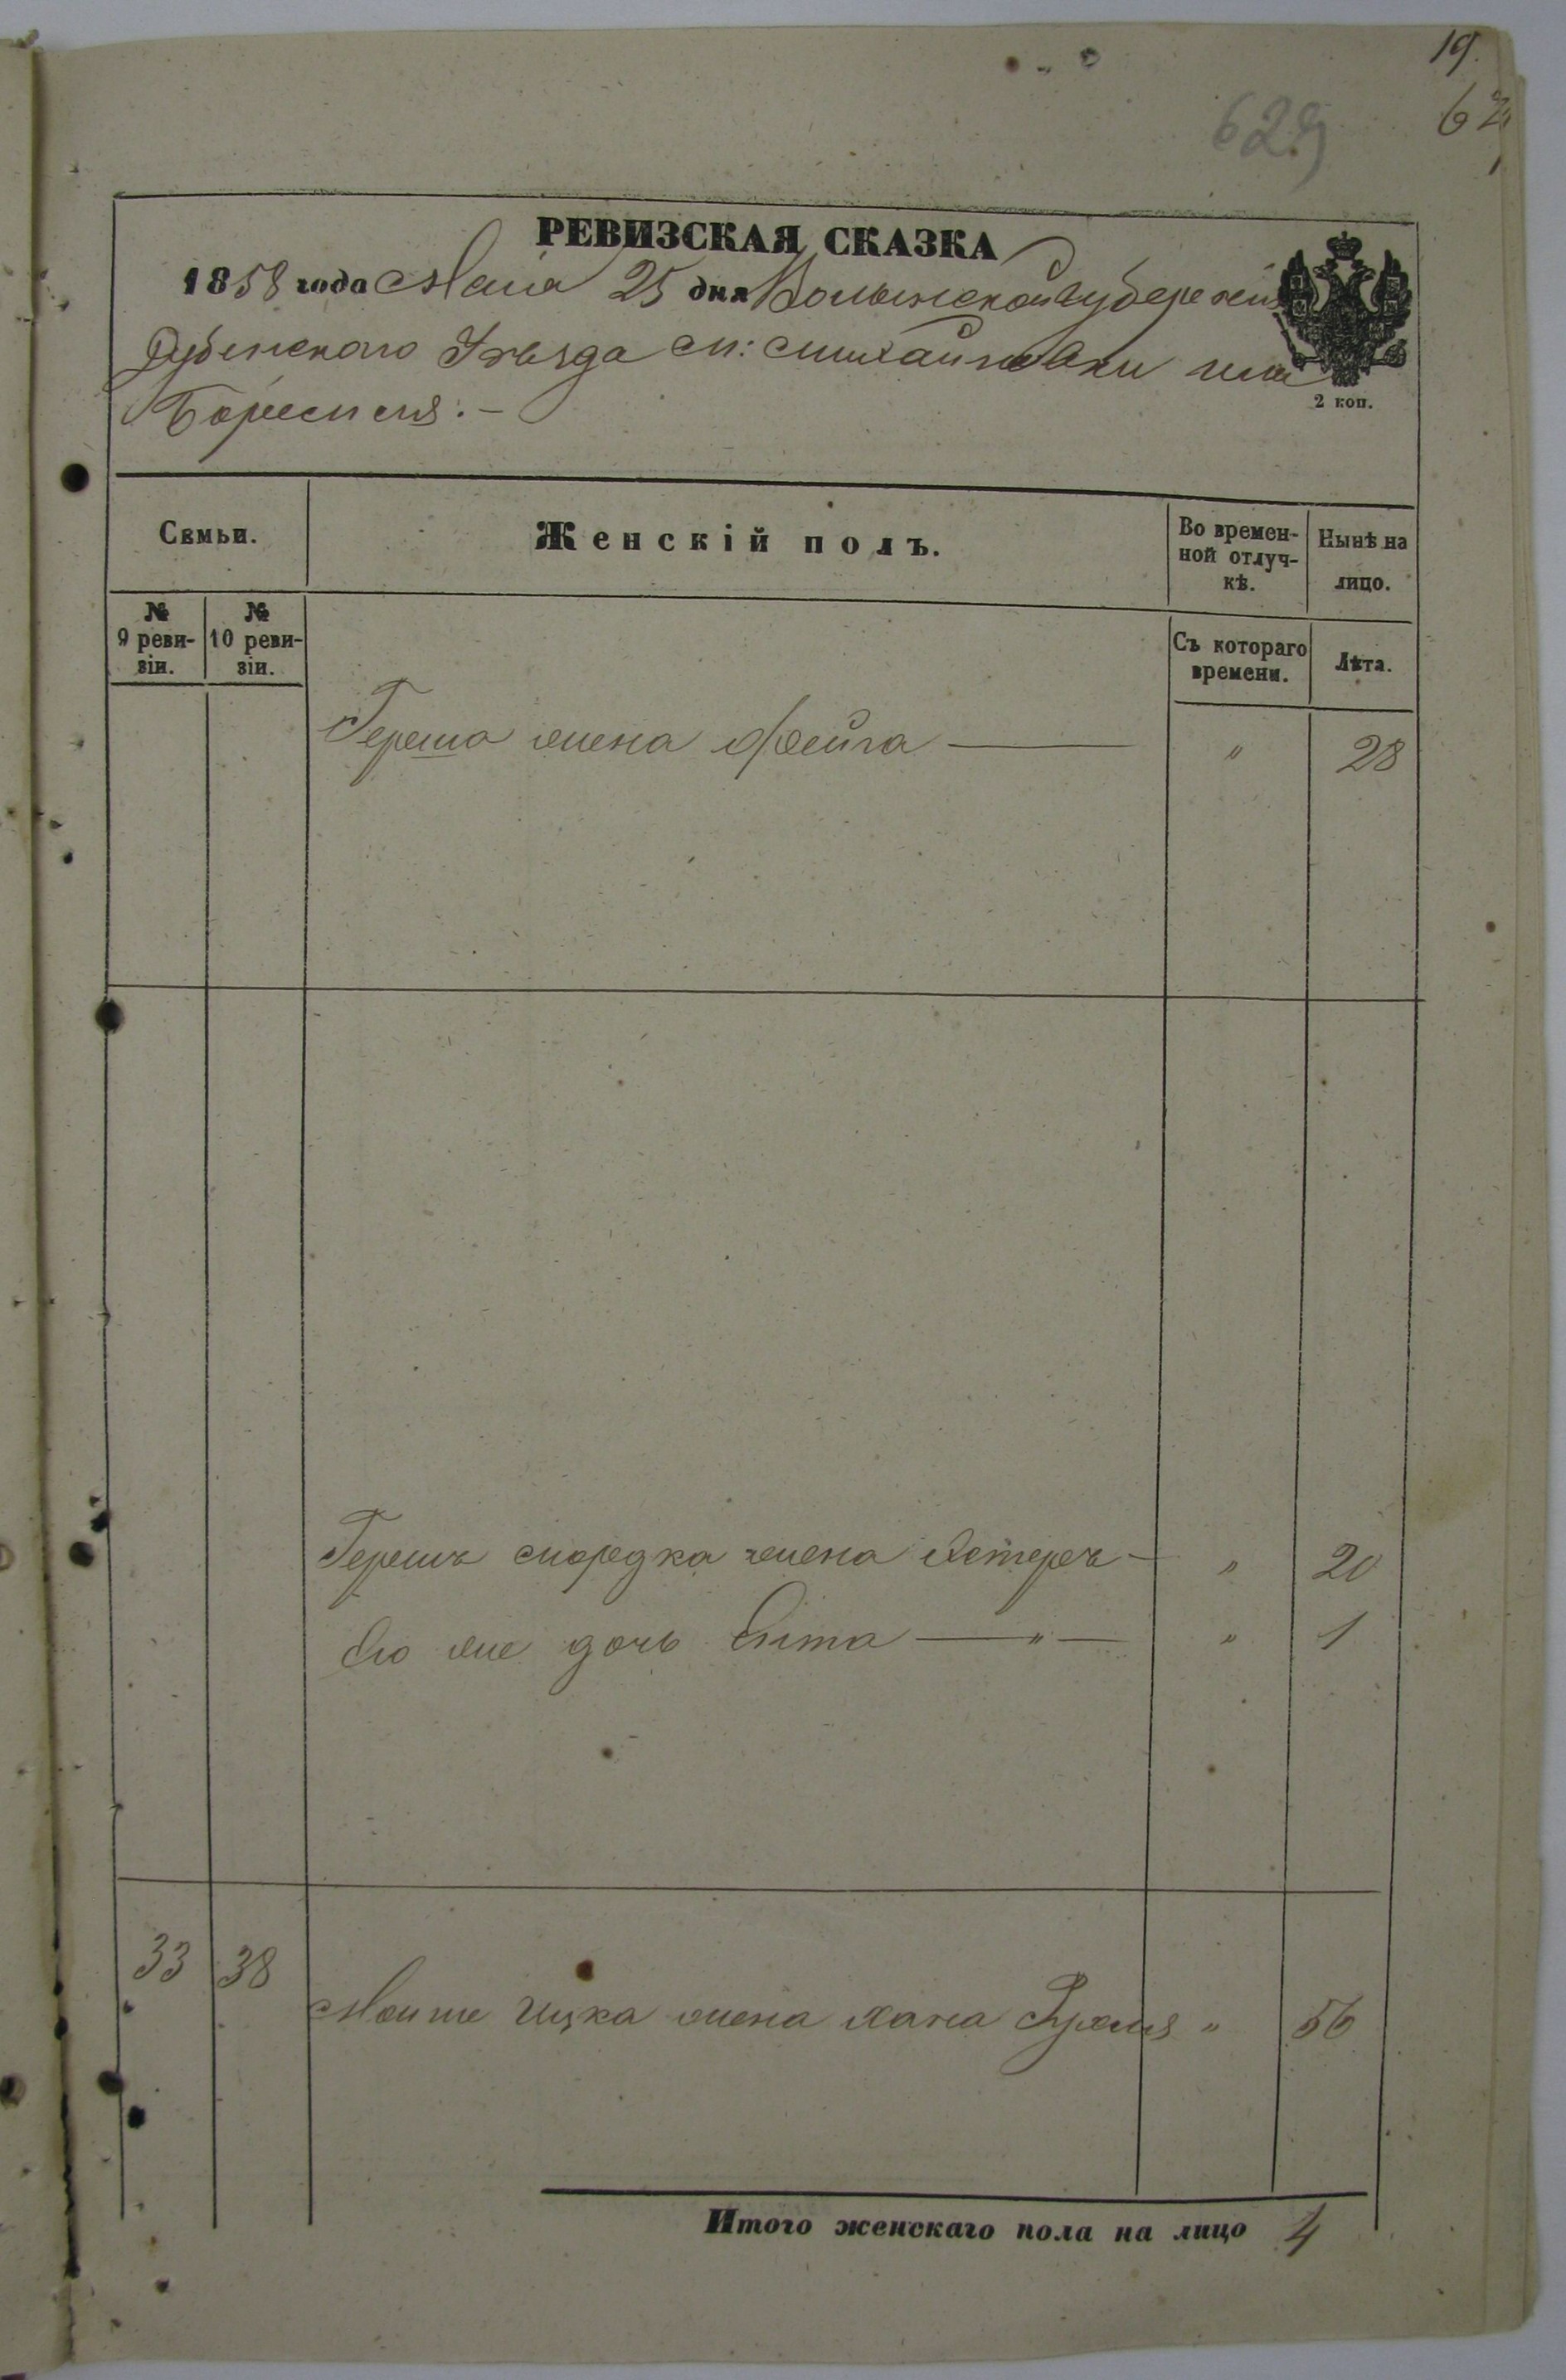 19.
629
62
РЕВИЗСКАЯ СКАЗКА
1858 года Маія 25 дня Волынской губерніи
Дубенского Уѣзда м: Михайловки или
Боремля:-
2 коп.
Семьи.
Женскій полъ.
Во времен-
ной отлуч-
кѣ.
Нынѣ на
лицо.
№
9 реви-
зіи.
№
10 реви-
зіи.
Съ котораго
времени.
Лѣта.
Герша жена Фейга — " 28
Гершъ Мордка жена Естеръ — " 20
Его же дочь — " — " 1
33 38
Мошке Ицка жена Хана " 56
Итого женскаго пола на лицо 4